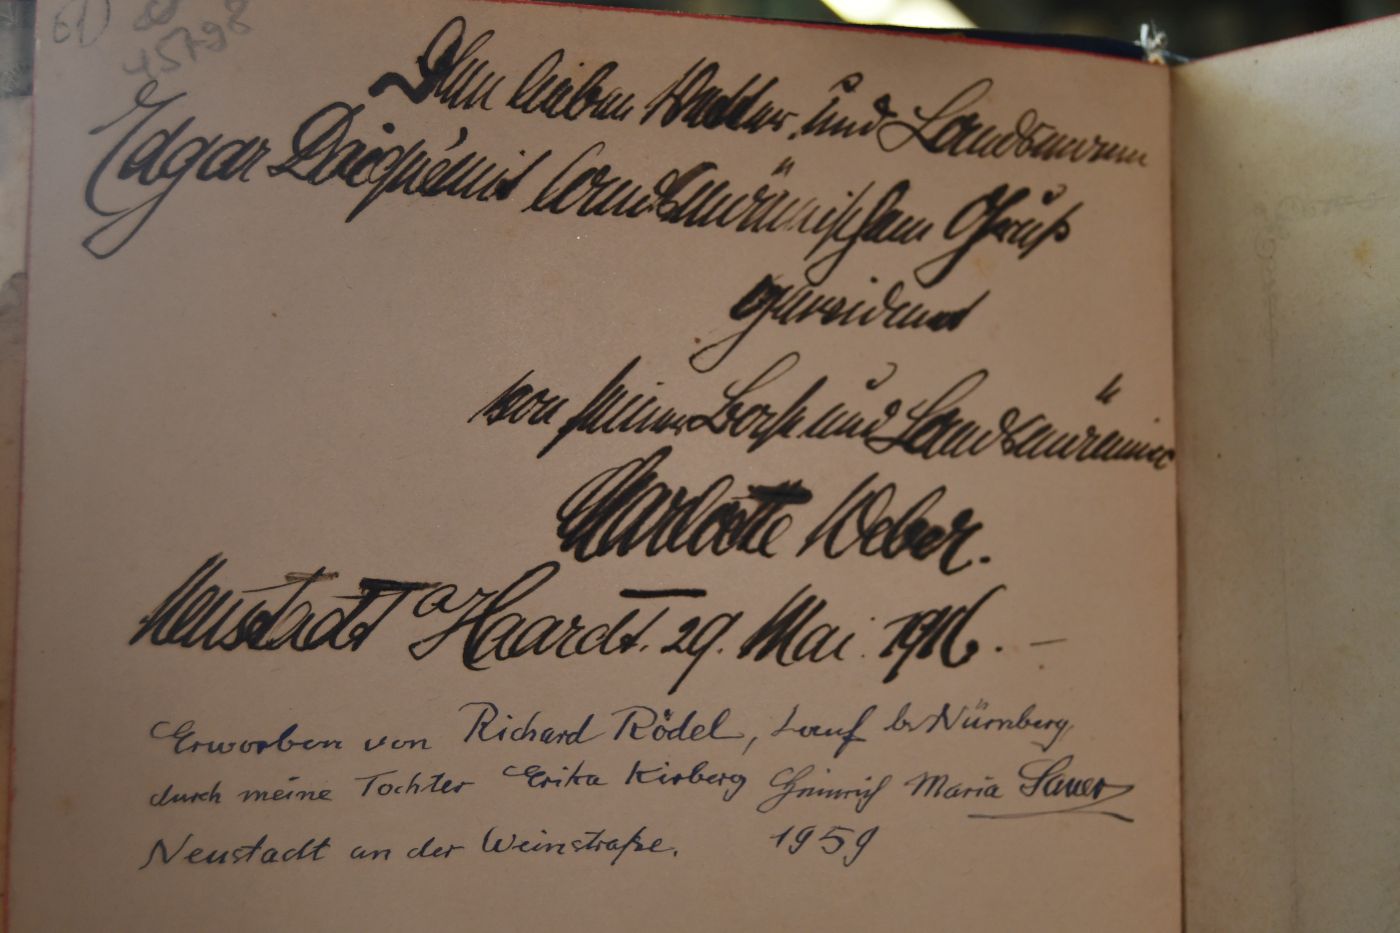 61)
45798
Dem lieben Vetter und Landsmann
Edgar Dacqué mit landsmännischem Gruß
gewidmet
von seiner Base und Landsmännin
Charlotte Weber.
Neustadt a/Haardt. 29. Mai. 1916. –
Erworben von Richard Rödel, Lauf b. Nürnberg,
durch meine Tochter Erika Kirberg Heinrich Maria Sauer
Neustadt an der Weinstraße. 1959